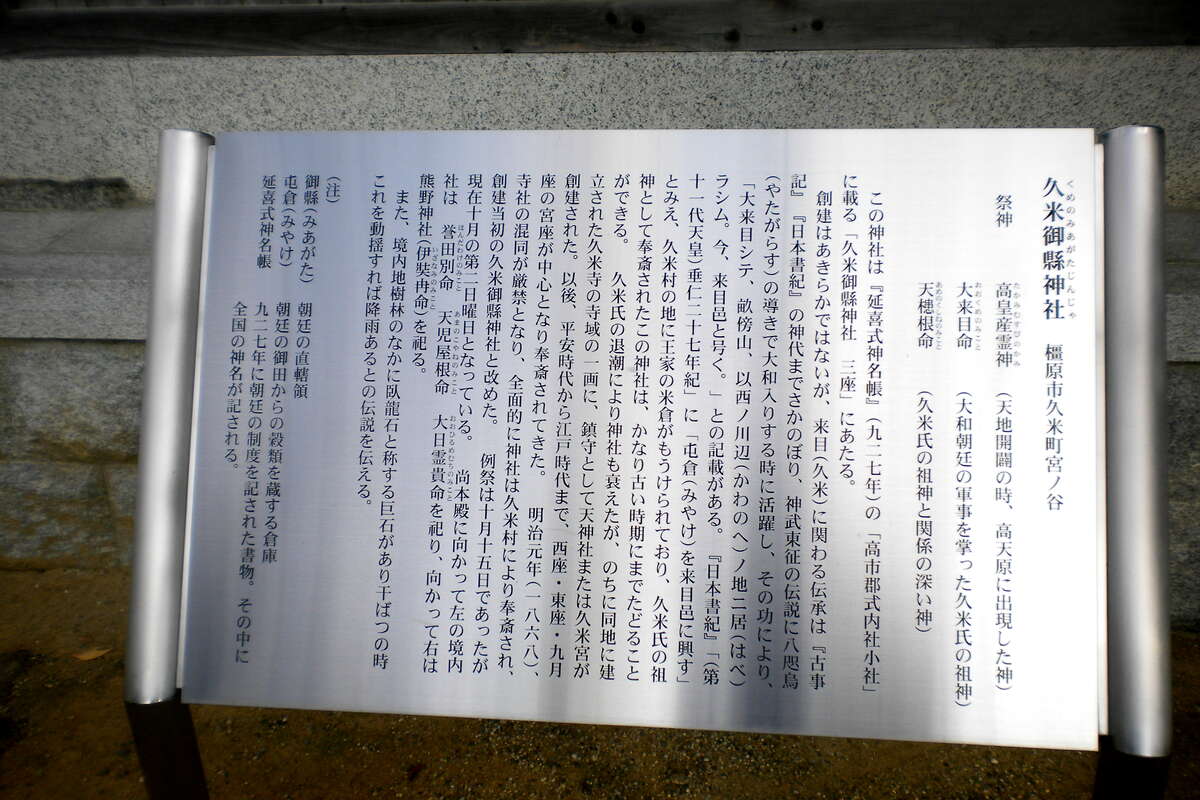 久米御縣神社 橿原市久米町宮ノ谷
くめのみあがたじんじゃ
祭神 高皇産霊神 (天地開闢の時、高天原に出現した神)
たかみむすびのかみ
大来目命 (大和朝廷の軍事を掌った久米氏の祖神)
おおくめのみこと
天槵根命 (久米氏の祖神と関係の深い神)
この神社は『延喜式神名帳』(九二七年)の「高市郡式内社小社」
に載る「久米御縣神社 三座」にあたる。
創建はあきらかではないが、来目(久米)に関わる伝承は『古事
記』『日本書紀』の神代までさかのぼり、神武東征の伝説に八咫烏
(やたがらす)の導きで大和入りする時に活躍し、その功により、
「大来目シテ、畝傍山、以西ノ川辺(かわのへ)ノ地ニ居(はべ)
ラシム。今、来目邑と号く。」との記載がある。『日本書紀』「(第
十一代天皇)垂仁二十七年紀」に「屯倉(みやけ)を来目邑に興す」
とみえ、久米村の地に王家の米倉がもうけられており、久米氏の祖
神として奉斎されたこの神社は、かなり古い時期にまでたどること
ができる。 久米氏の退潮により神社も衰えたが、のちに同地に建
立された久米寺の寺域の一画に、鎮守として天神社または久米宮が
創建された。以後、平安時代から江戸時代まで、西座・東座・九月
座の宮座が中心となり奉斎されてきた。 明治元年(一八六八)、
寺社の混同が厳禁となり、全面的に神社は久米村により奉斎され、
創建当初の久米御縣神社と改めた。 例祭は十月十五日であったが
現在十月の第二日曜日となっている。 尚本殿に向かって左の境内
社は 誉田別命 天児屋根命 大日霊貴命を祀り、向かって右は
ほんだわけのみこと あまのこやねのみこと おおひるめむちのみこと
熊野神社(伊奘冉命)を祀る。
いざなみのみこと
また、境内地樹林のなかに臥龍石と称する巨石があり干ばつの時
これを動揺すれば降雨あるとの伝説を伝える。
(注)
御縣(みあがた) 朝廷の直轄領
屯倉(みやけ) 朝廷の御田からの穀類を蔵する倉庫
延喜式神名帳 九二七年に朝廷の制度を記された書物。その中に
全国の神名が記される。